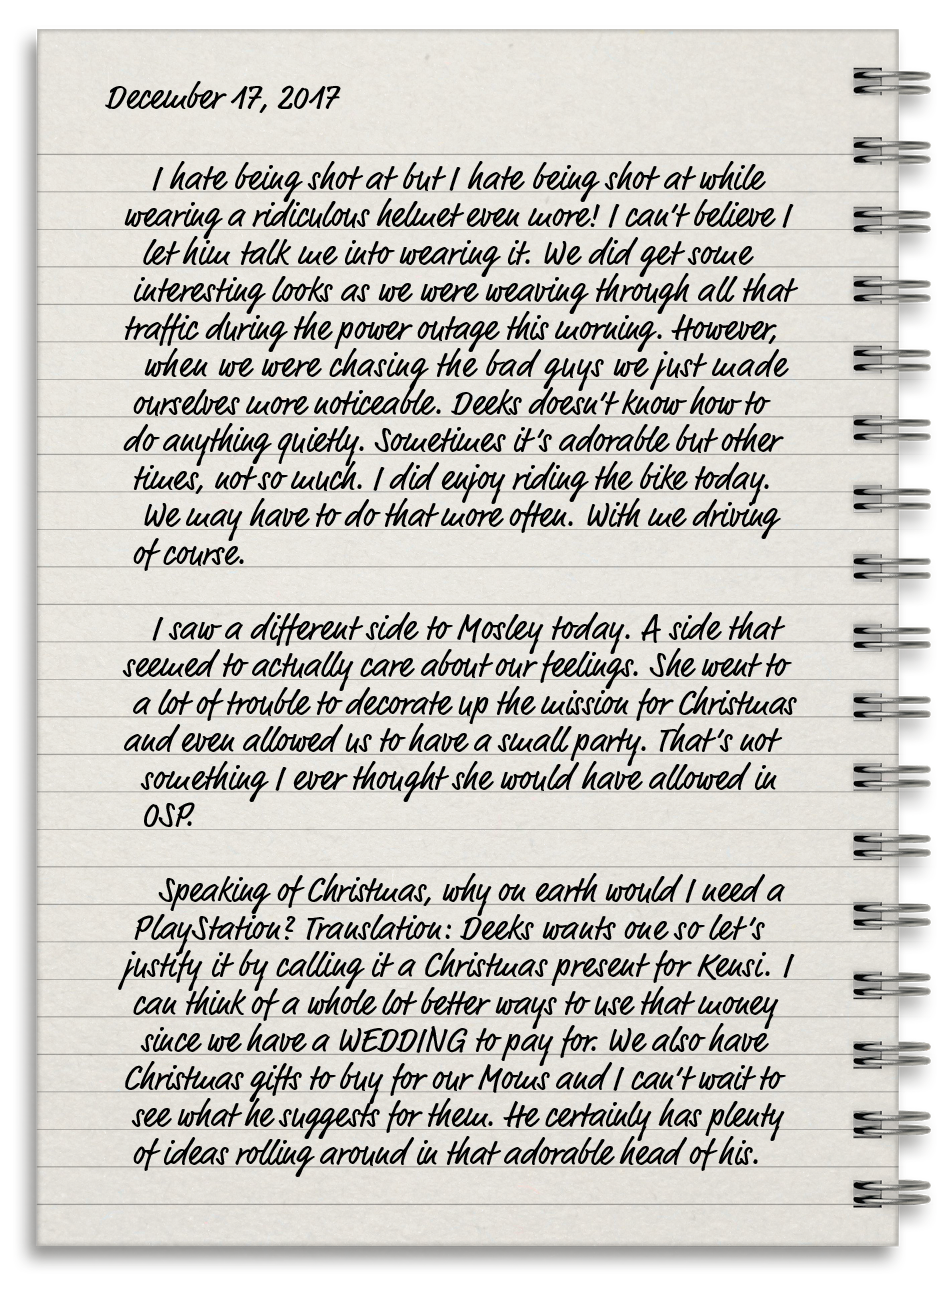 December 17, 2017
I hate being shot at but I hate being shot at while
wearing a ridiculous helmet even more! I can't believe I
let him talk me into wearing it. We did get some
interesting looks as we were weaving through all that
traffic during the power outage this morning. However,
when we were chasing the bad guys we just made
ourselves more noticeable. Deeks doesn't know how to
do anything quietly. Sometimes it's adorable but other
times, not so much. I did enjoy riding the bike today.
We may have to do that more often. With me driving
of course.
I saw a different side to Mosley today. A side that
seemed to actually care about our feelings. She went to
a lot of trouble to decorate up the mission for Christmas
and even allowed us to have a small party. That's not
something I ever thought she would have allowed in
OSP.
Speaking of Christmas, why on earth would I need a
PlayStation? Translation: Deeks wants one so let's
justify it by calling it a Christmas present for Kensi. I
can think of a whole lot better ways to use that money
since we have a WEDDING to pay for. We also have
Christmas gifts to buy for our Moms and I can't wait to
see what he suggests for them. He certainly has plenty
of ideas rolling around in that adorable head of his.